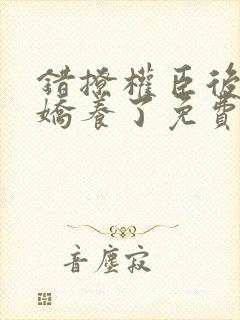 錯撩權臣後
嬌養了免費
音塵寂